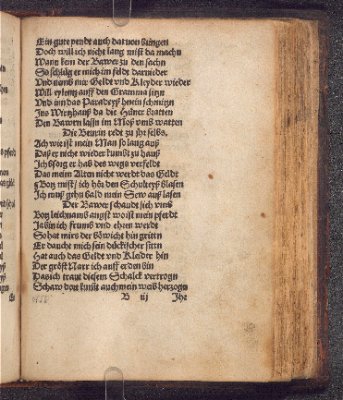 Ein gute peudt auch das von klingen
Doch will ich nicht lang mist da machn
Wann kem der Bawer zu den sachn
So schlüg er mich im feldt darnieder
Und nems mir Geldt und Kleyder wieder
Will eylentz auff den Gramma sitzn
Und inn das Paradeyß hinein schmitzn
Ins Wirtzhauß da die Hüner bratten
Den Bawrn lassn im Moß umb watten
Die Bewrin redt zu ihr selbs.
Ich wie ist mein Man so lang auß
Daß er nicht wieder kumbt zu hauß
Ich bsorg er hab des wegs verfeldt
Das mein Alten nicht werdt das Geldt
Botz mist ich hör den Schultheys blasen
Ich muß gehn bald mein Sew auß lasen
Der Bawer schaudt sich umb
Botz leichnams angst wo ist mein pferdt
Ja bin ich frumb und ehren werdt
So hat mirs der böswicht hin gridtn
Er daucht mich sein dückischer sittn
Hat auch das Geldt und Kleider hin
Der gröst Narr ich auff erden bin
Das ich traut diesem Schalck vertrogn
Schaw dort kumbt auch mein weib herzogn
B iij Ihr